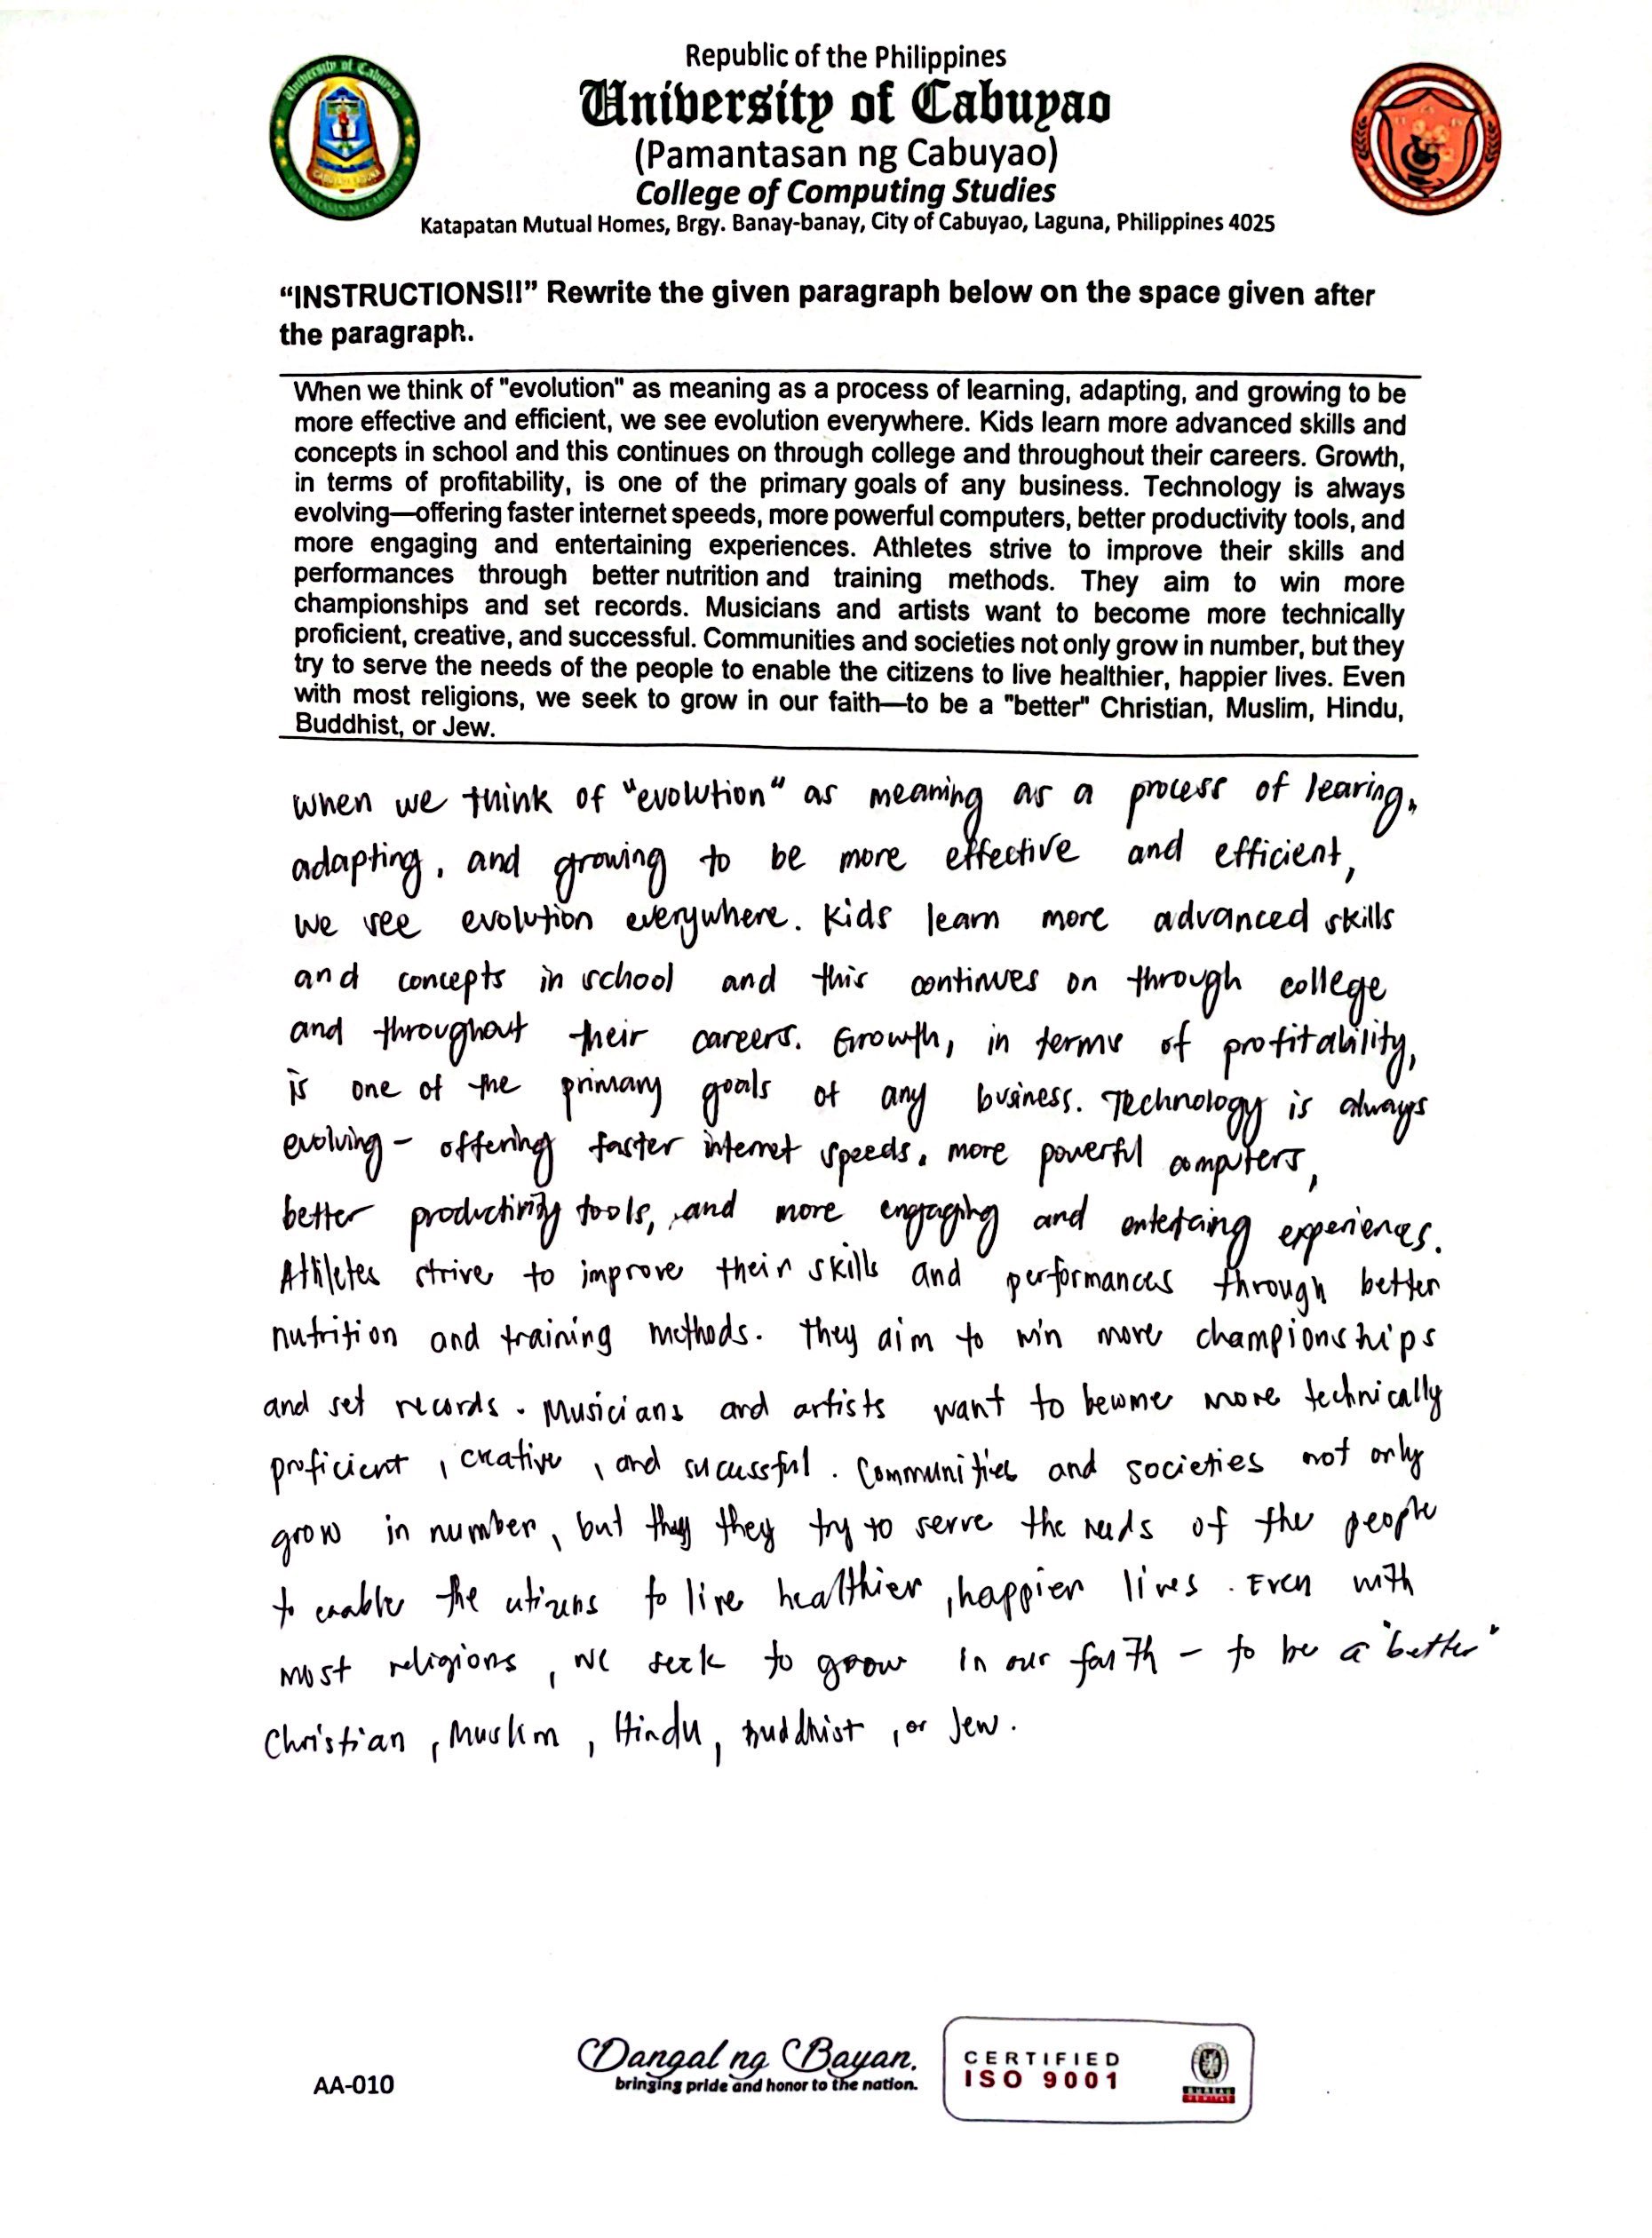 Republic of the Philippines
University of Cabuyao
(Pamantasan ng Cabuyao)
College of Computing Studies
Katapatan Mutual Homes, Brgy. Banay-banay, City of Cabuyao, Laguna, Philippines 4025
“INSTRUCTIONS!!” Rewrite the given paragraph below on the space given after
the paragraph.
When we think of "evolution" as meaning as a process of learning, adapting, and growing to be
more effective and efficient, we see evolution everywhere. Kids learn more advanced skills and
concepts in school and this continues on through college and throughout their careers. Growth,
in terms of profitability, is one of the primary goals of any business. Technology is always
evolving—offering faster internet speeds, more powerful computers, better productivity tools, and
more engaging and entertaining experiences. Athletes strive to improve their skills and
performances through better nutrition and training methods. They aim to win more
championships and set records. Musicians and artists want to become more technically
proficient, creative, and successful. Communities and societies not only grow in number, but they
try to serve the needs of the people to enable the citizens to live healthier, happier lives. Even
with most religions, we seek to grow in our faith—to be a "better" Christian, Muslim, Hindu,
Buddhist, or Jew.
When we think of "evolution" as meaning as a process of learing,
adapting, and growing to be more effective and efficient,
we see evolution everywhere. Kids learn more advanced skills
and concepts in school and this continues on through college
and throughout their careers. Growth, in terms of profitability,
is one of the primary goals of any business. Technology is always
evolving - offering faster internet speeds, more powerful computers,
better productivity tools, and more engaging and entertaing experiences.
Athletes strive to improve their skills and performances through better
nutrition and training methods. They aim to win more championships
and set records. Musicians and artists want to become more technically
proficient, creative, and successful. Communities and societies not only
grow in number, but they they try to serve the needs of the people
to enable the citizens to live healthier, happier lives. Even with
most religions, we seek to grow in our faith - to be a "better"
Christian, Muslim, Hindu, Buddhist, or Jew.
AA-010
Dangal ng Bayan.
bringing pride and honor to the nation.
CERTIFIED
ISO 9001